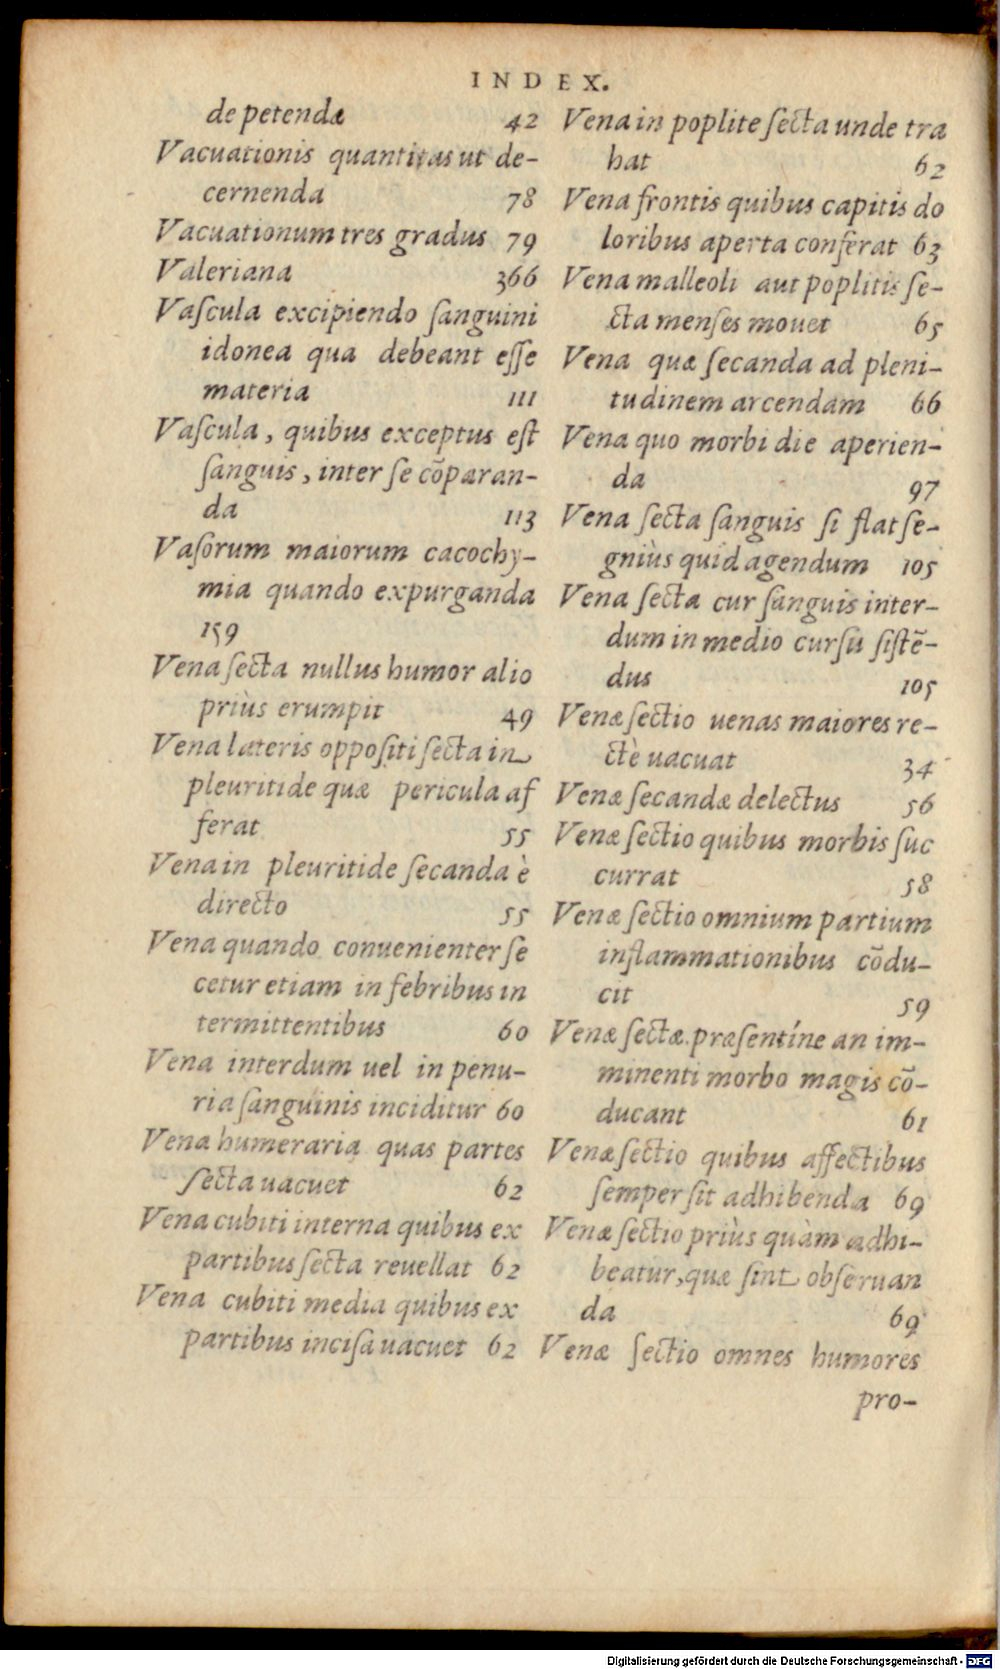 INDEX.
depetendæ 42
Vacuationis quantitas ut de-
cernenda 78
Vacuationum tres gradus 79
Valeriana 366
Vaſcula excipiendo ſanguini
idonea qua debeant eſſe
materia 111
Vaſcula, quibus exceptus eſt
ſanguis, inter ſe cõparan-
da 113
Vaſorum maiorum cacochy-
mia quando expurganda
159
Vena ſecta nullus humor alio
priùs erumpit 49
Vena lateris oppoſiti ſecta in
pleuritide quæ pericula af
ferat 55
Vena in pleuritide ſecanda è
directo 55
Vena quando conuenienter ſe
cetur etiam in febribus in
termittentibus 60
Vena interdum uel in penu-
ria ſanguinis inciditur 60
Vena humeraria quas partes
ſecta uacuet 62
Vena cubiti interna quibus ex
partibus ſecta reuellat 62
Vena cubiti media quibus ex
partibus inciſa uacuet 62
Vena in poplite ſecta unde tra
hat 62
Vena frontis quibus capitis do
loribus aperta conferat 63
Vena malleoli aut poplitis ſe-
cta menſes mouet 65
Vena quæ ſecanda ad pleni-
tudinem arcendam 66
Vena quo morbi die aperien-
da 97
Vena ſecta ſanguis ſi flat ſe-
gniùs quid agendum 105
Vena ſecta cur ſanguis inter-
dum in medio curſu ſiſtẽ-
dus 105
Venæ ſectio uenas maiores re-
ctè uacuat 34
Venæ ſecandæ delectus 56
Venæ ſectio quibus morbis ſuc
currat 58
Venæ ſectio omnium partium
inflammationibus cõdu-
cit 59
Venæ ſectæ præſentíne an im-
minenti morbo magis cõ-
ducant 61
Venæ ſectio quibus affectibus
ſemper ſit adhibenda 69
Venæ ſectio priùs quàm adhi-
beatur, quæ ſint obſeruan
da 69
Venæ ſectio omnes humores
pro-
Digitalisierung gefördert durch die Deutsche Forschungsgemeinschaft - DFG